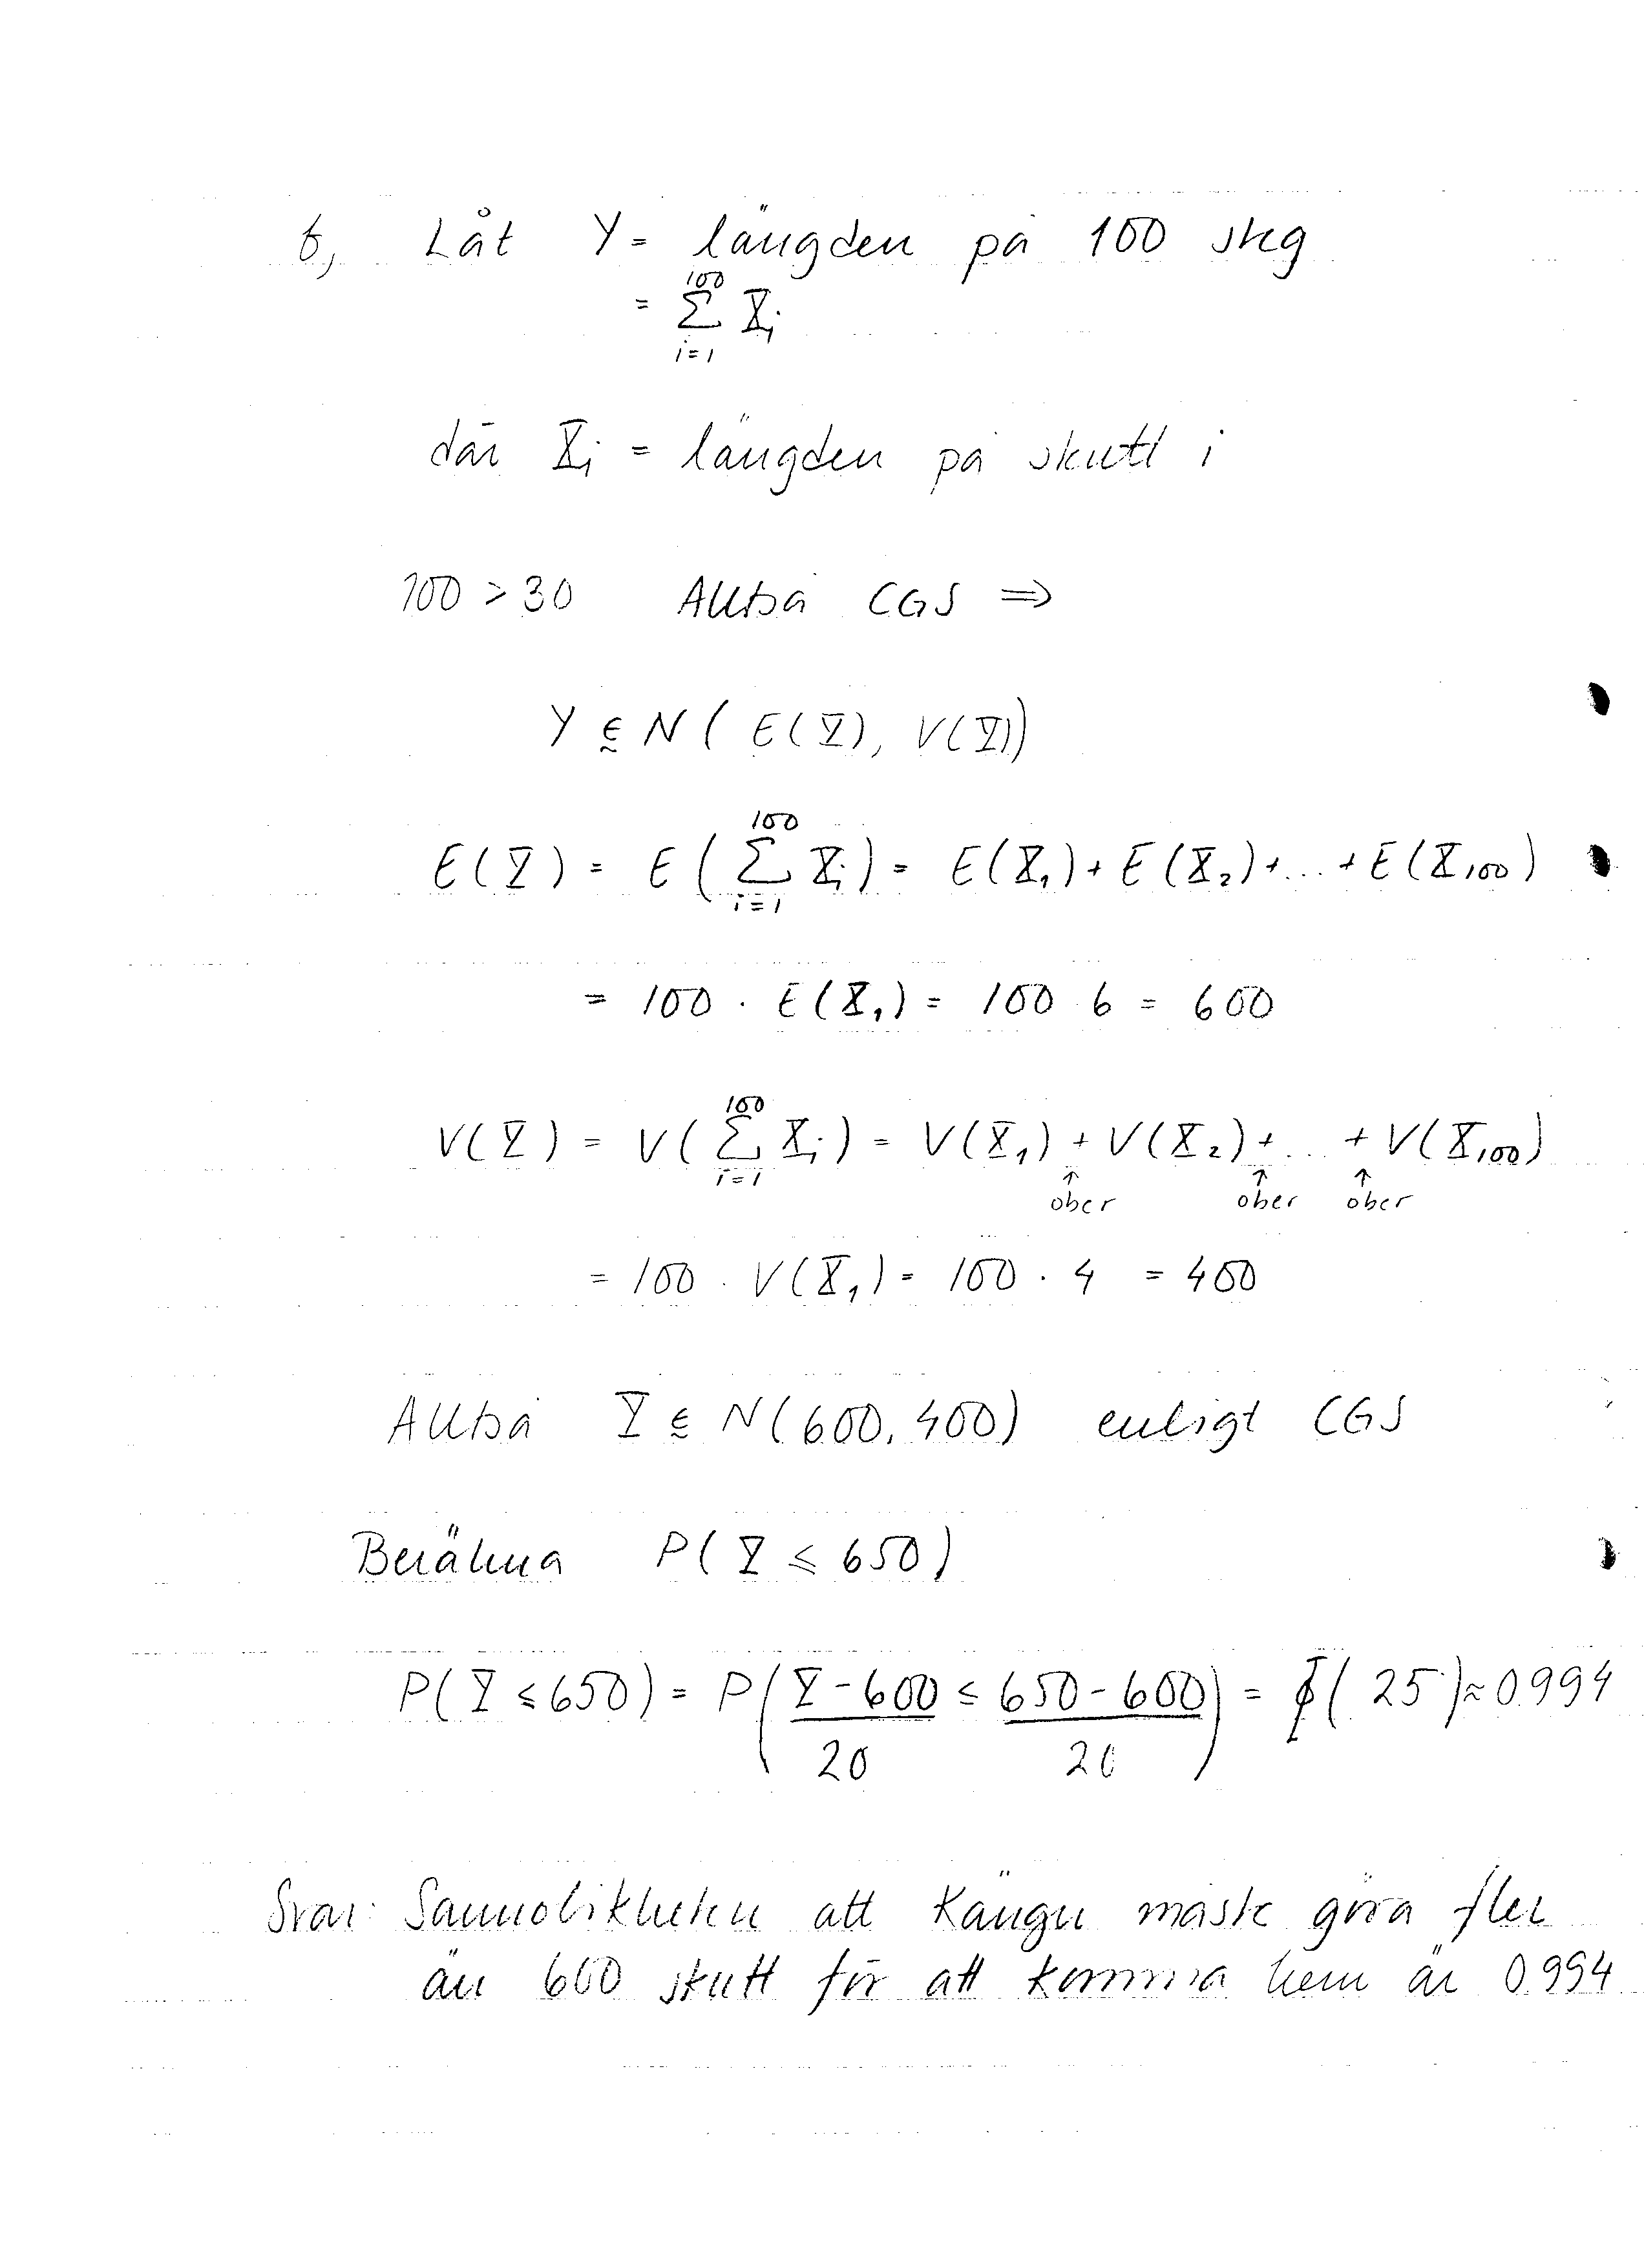 b, Låt Y = längden på 100 steg
= \sum_{i=1}^{100} X_i
där X_i = längden på skutt i
100 > 30 Alltså CGS ⇒
Y ∈ N( E(Y), V(Y))
E(Y) = E( \sum_{i=1}^{100} X_i ) = E(X_1) + E(X_2) + ... + E(X_100)
= 100 · E(X_1) = 100 6 = 600
V(Y) = V( \sum_{i=1}^{100} X_i ) = V(X_1) + V(X_2) + ... + V(X_100)
↑ ↑ ↑
ober ober ober
= 100 · V(X_1) = 100 · 4 = 400
Alltså Y ∈ N(600, 400) enligt CGS
Beräkna P( Y ≤ 650 )
P( Y ≤ 650 ) = P( (Y - 600)/20 ≤ (650 - 600)/20 ) = Φ( 25 ) ≈ 0.994
Svar: Sannolikheten att Kängu måste göra fler
än 600 skutt för att komma hem är 0.994